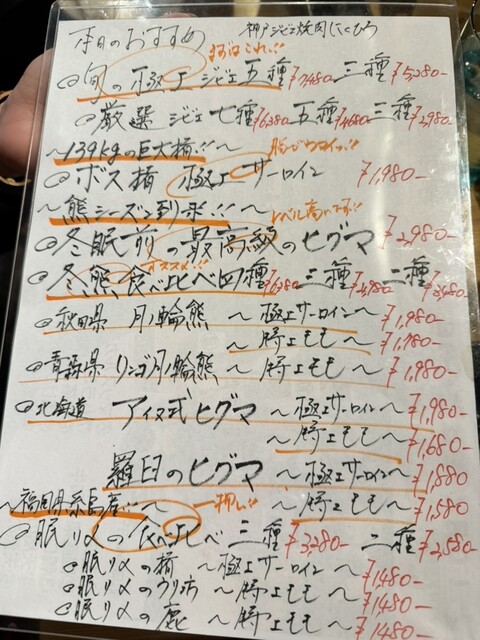 本日のおすすめ 神戸ジビエ焼肉にくひろ
まずはこれ!!
旬の極上ジビエ五種 ¥7,480- 三種 ¥5,280-
厳選ジビエ七種 ¥6,380- 五種 ¥4,680- 三種 ¥2,980-
〜139kgの巨大猪!!〜
ボス猪 極上サーロイン ¥1,980-
〜熊シーズン到来!!〜 レベル高いです!!
冬眠前の最高級のヒグマ ¥2,980-
オススメ!!
冬熊食べ比べ四種 ¥6,280- 三種 ¥4,980- 二種 ¥3,480-
秋田県 月ノ輪熊 〜極上サーロイン〜 ¥1,980-
〜特上モモ〜 ¥1,780-
青森県 リンゴ月ノ輪熊 〜特上モモ〜 ¥1,980-
北海道 アイヌ式ヒグマ 〜極上サーロイン〜 ¥1,980-
〜特上モモ〜 ¥1,680-
羅臼のヒグマ 〜極上サーロイン〜 ¥1,880-
〜特上モモ〜 ¥1,580-
〜福岡県糸島産!!〜 一押し!!
眠りメの食べ比べ 三種 ¥3,280- 二種 ¥2,580-
眠りメの猪 〜極上サーロイン〜 ¥1480-
眠りメのウリ坊 〜特上モモ〜 ¥1480-
眠りメの鹿 〜特上モモ〜 ¥1480-